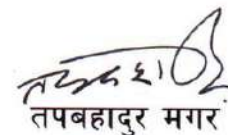 तपबहादुर मगर